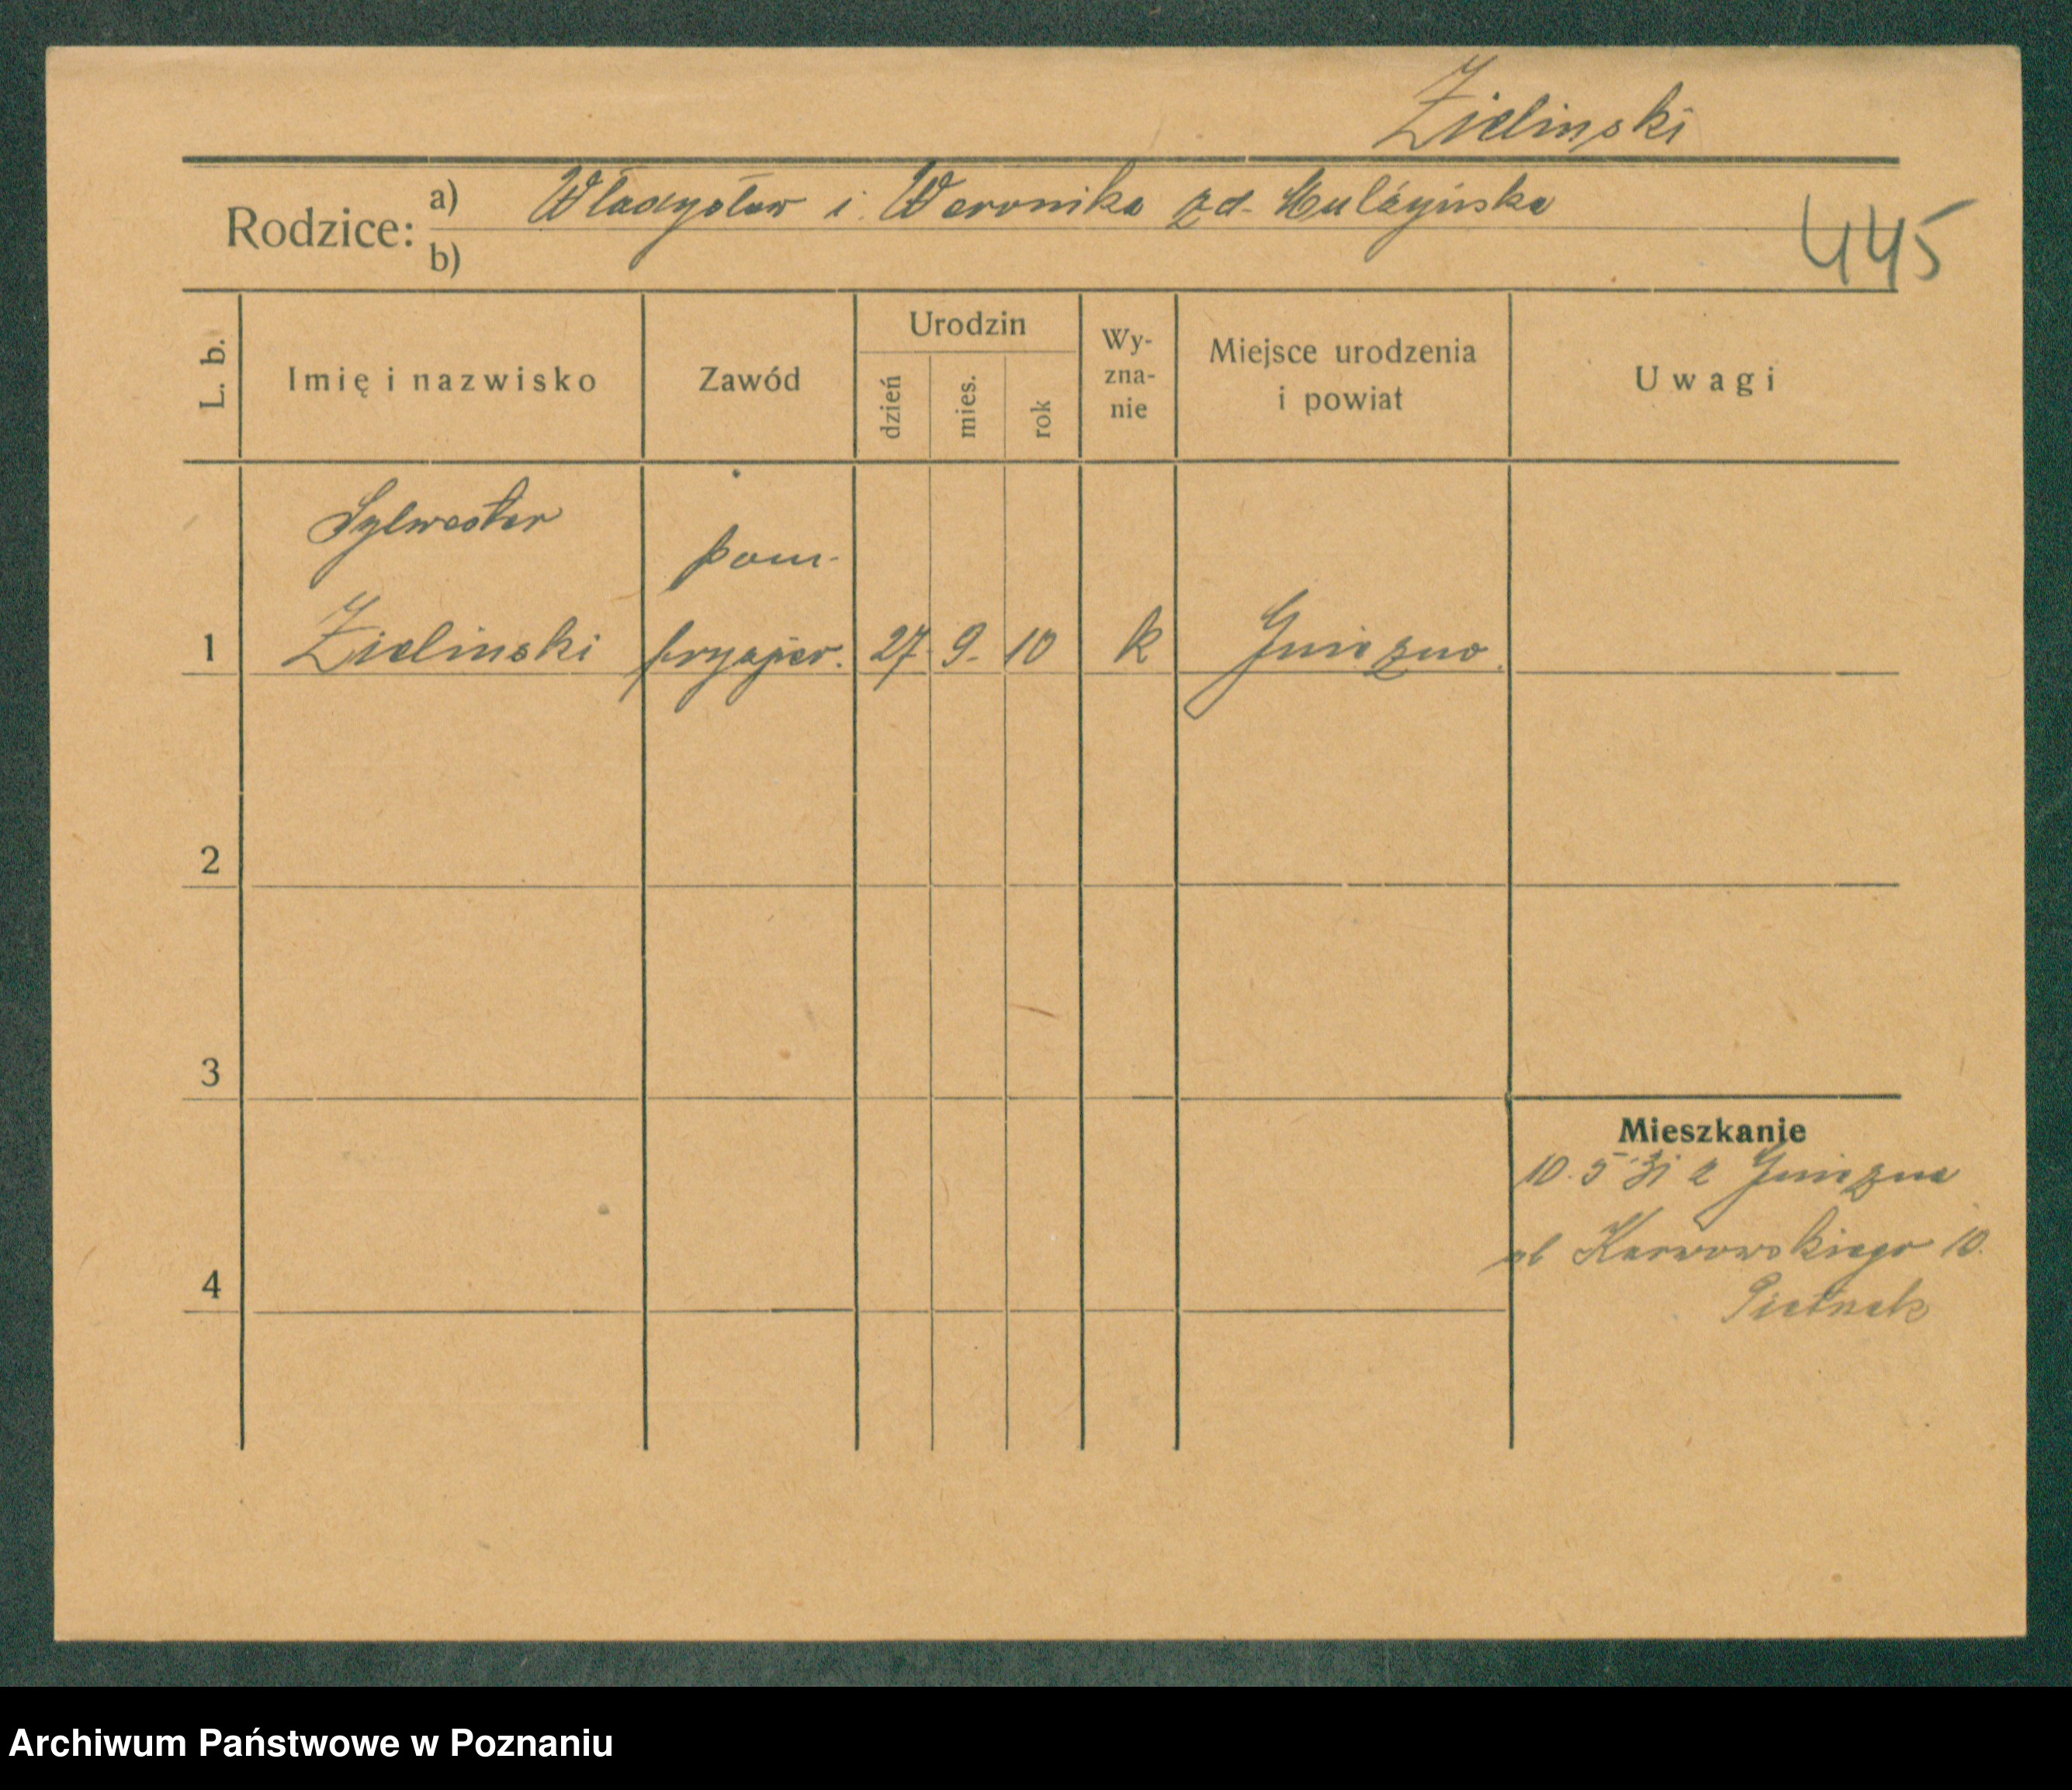 Zielinski
Rodzice: a) Władysław i Weronika zd.
b)
445
L. b. Imię i nazwisko Zawód Urodzin dzień mies. rok Wy-zna-nie Miejsce urodzenia i powiat Uwagi
Sylwester pom.
1 Zielinski fryzjer. 27. 9. 10 k Gniezno.
2
3
Mieszkanie
10. 5 31 z Gniezna
ul Karwowskiego 10.
4
Archiwum Państwowe w Poznaniu